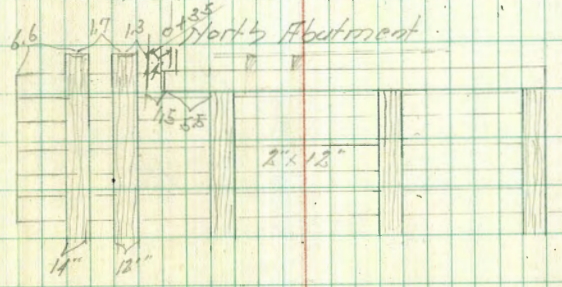 6.6 1.7 1.3 0+35
North Abutment
1.5 5.5
2"x12"
14" 12"